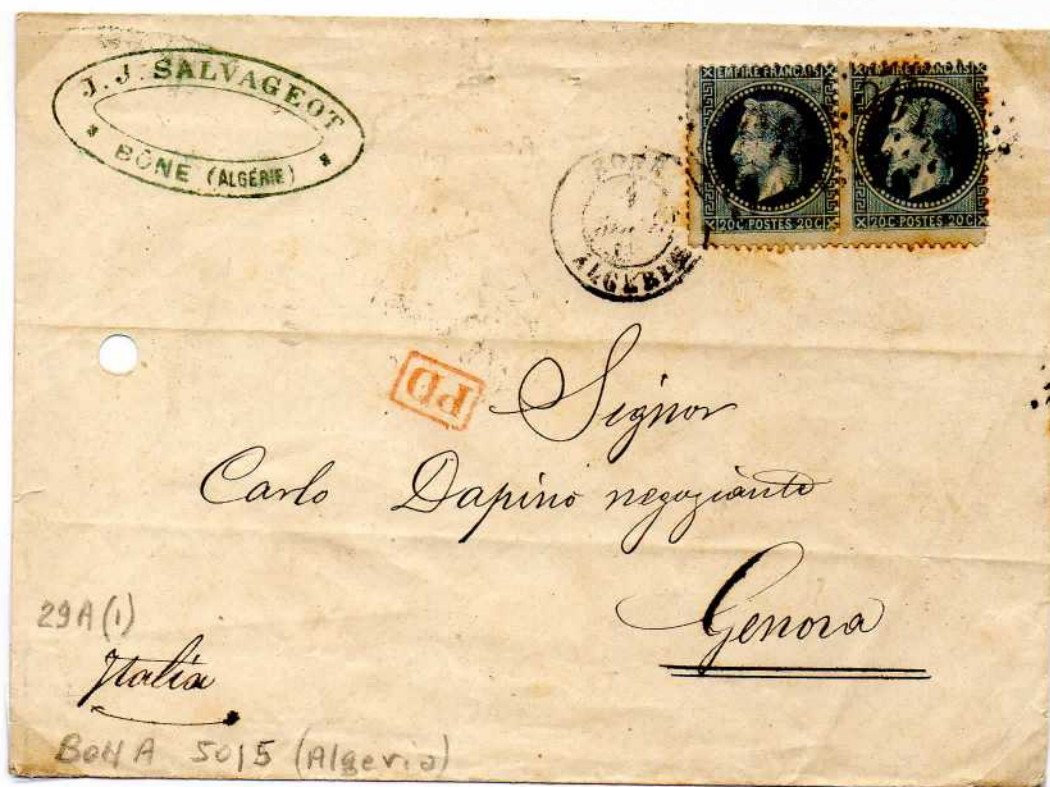 J. J. SALVAGEOT
* BÔNE (ALGÉRIE) *
EMPIRE FRANCAIS
20C POSTES 20C
EMPIRE FRANCAIS
20C POSTES 20C
BONE
ALGERIE
PD
Signor
Carlo Dapino negoziante
Genova
29A(1)
Italia
BONA 5015 (Algeria)